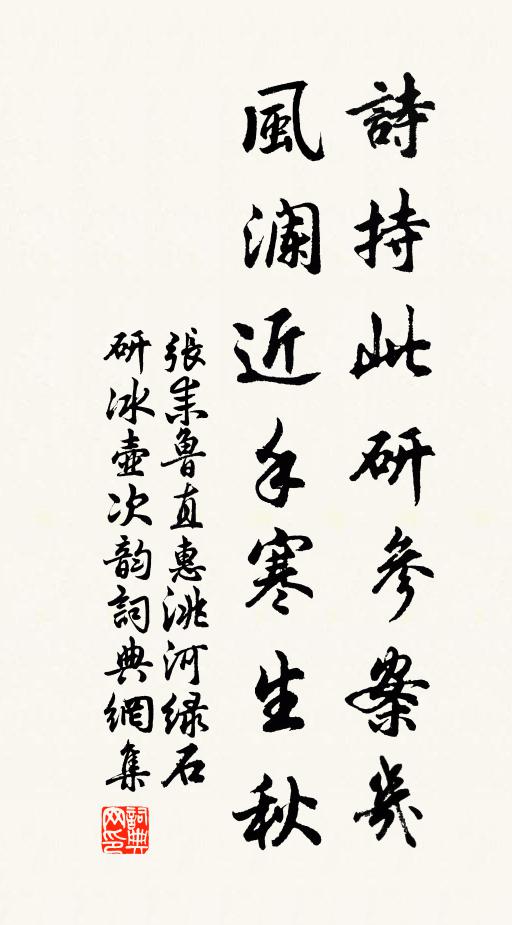 詩持此研參案幾
風瀾近手寒生秋
張耒魯直惠洮河緑石
研冰壺次韵詞典網集
詞典
网印